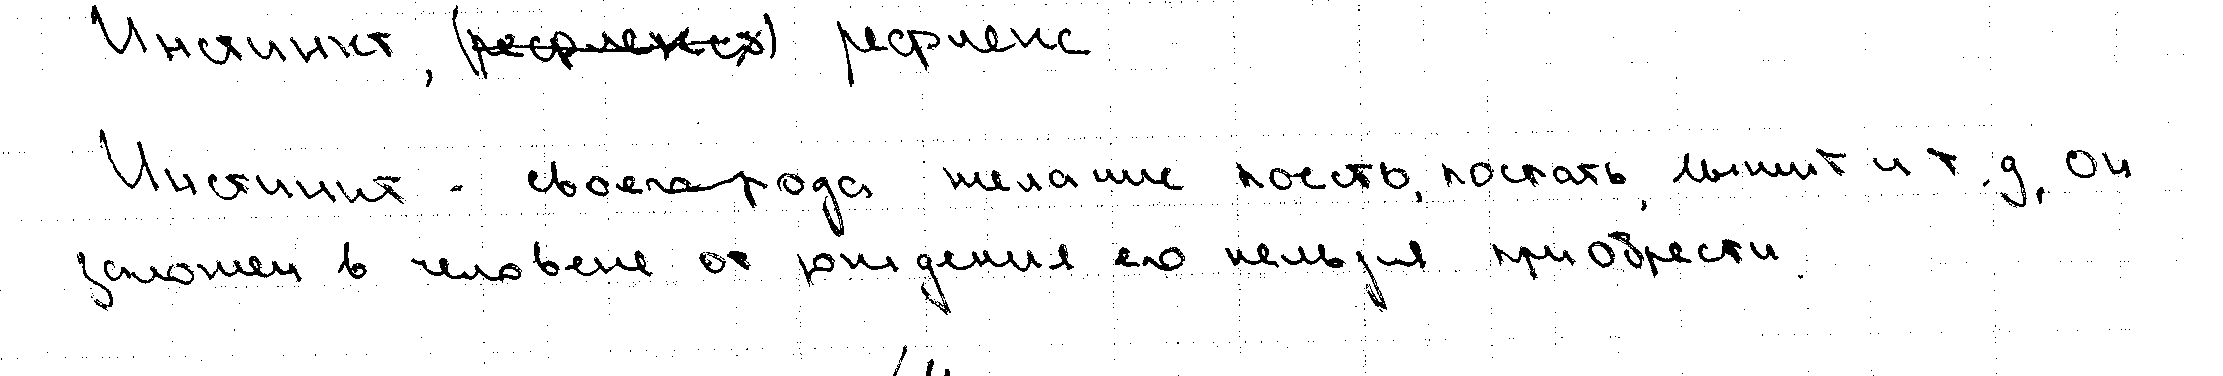 Инстинкт, (рефлексъ) рефлекс
Инстинкт - своего рода желание поесть, поспать, и т.д, он
заложен в человеке от рождения его нельзя приобрести.